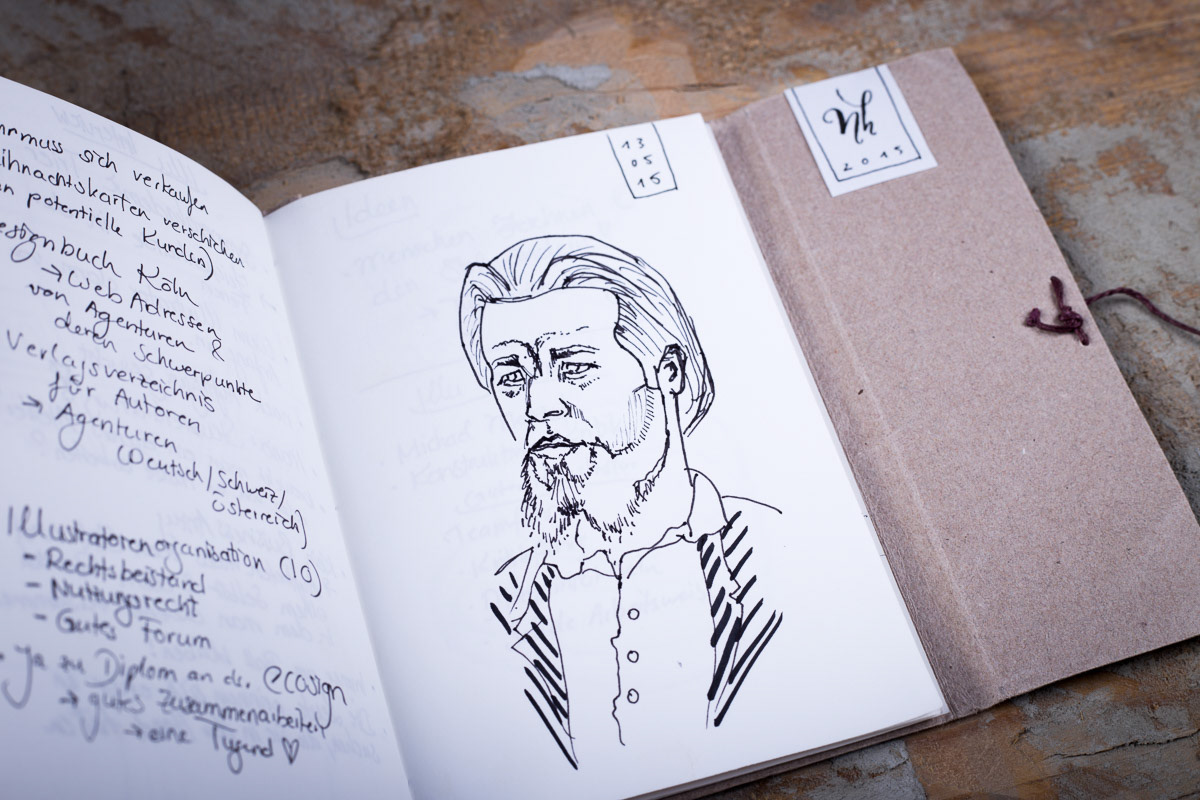 muss sich verkaufen
verschicken
potentielle Kunden)
Köln
→ Web Adressen
von Agenturen &
deren Schwerpunkte
Verlagsverzeichnis
für Autoren
→ Agenturen
(Deutsch/Schweiz/
Österreich)
Illustratorenorganisation (IO)
- Rechtsbeistand
- Nutzungsrecht
- Gutes Forum
Ja zu Diplom an der ecosign
→ gutes Zusammenarbeiten
→ eine Tugend ♡
13
05
15
Nh
2015